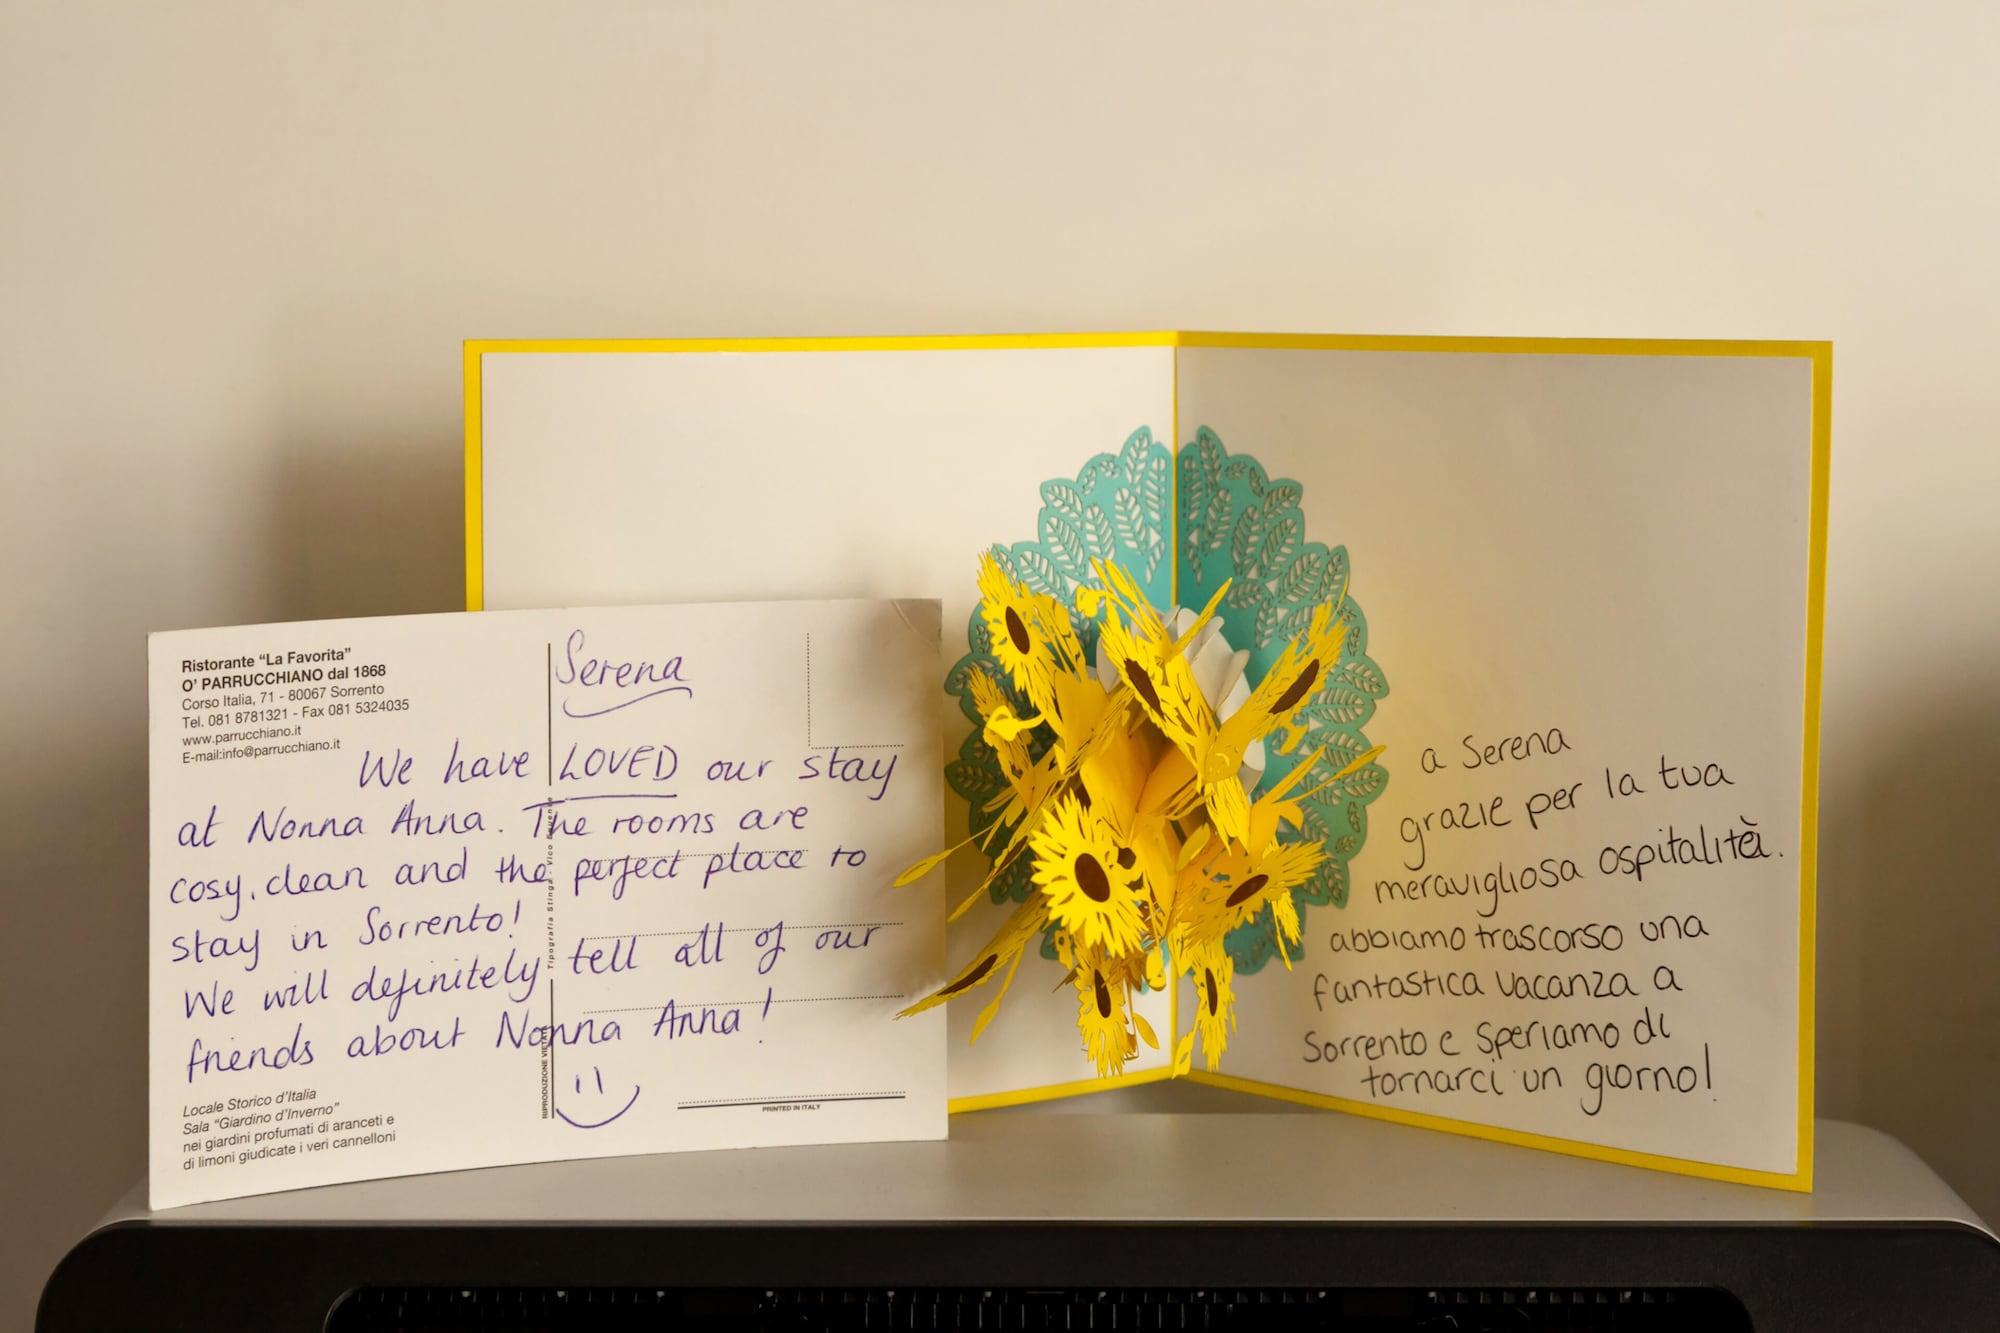 Ristorante "La Favorita"
O' PARRUCCHIANO dal 1868
Corso Italia, 71 - 80067 Sorrento
Tel. 081 8781321 - Fax 081 5324035
www.parrucchiano.it
E-mail:info@parrucchiano.it
Serena
We have LOVED our stay
at Nonna Anna. The rooms are
cosy, clean and the perfect place to
stay in Sorrento!
We will definitely tell all of our
friends about Nonna Anna!
Locale Storico d'Italia
Sala "Giardino d'Inverno"
nei giardini profumati di aranceti e
di limoni giudicate i veri cannelloni
RIPRODUZIONE VIETATA
Tipografia Stinga - Vico Equense
PRINTED IN ITALY
a Serena
grazie per la tua
meravigliosa ospitalità.
abbiamo trascorso una
fantastica vacanza a
Sorrento e speriamo di
tornarci un giorno!